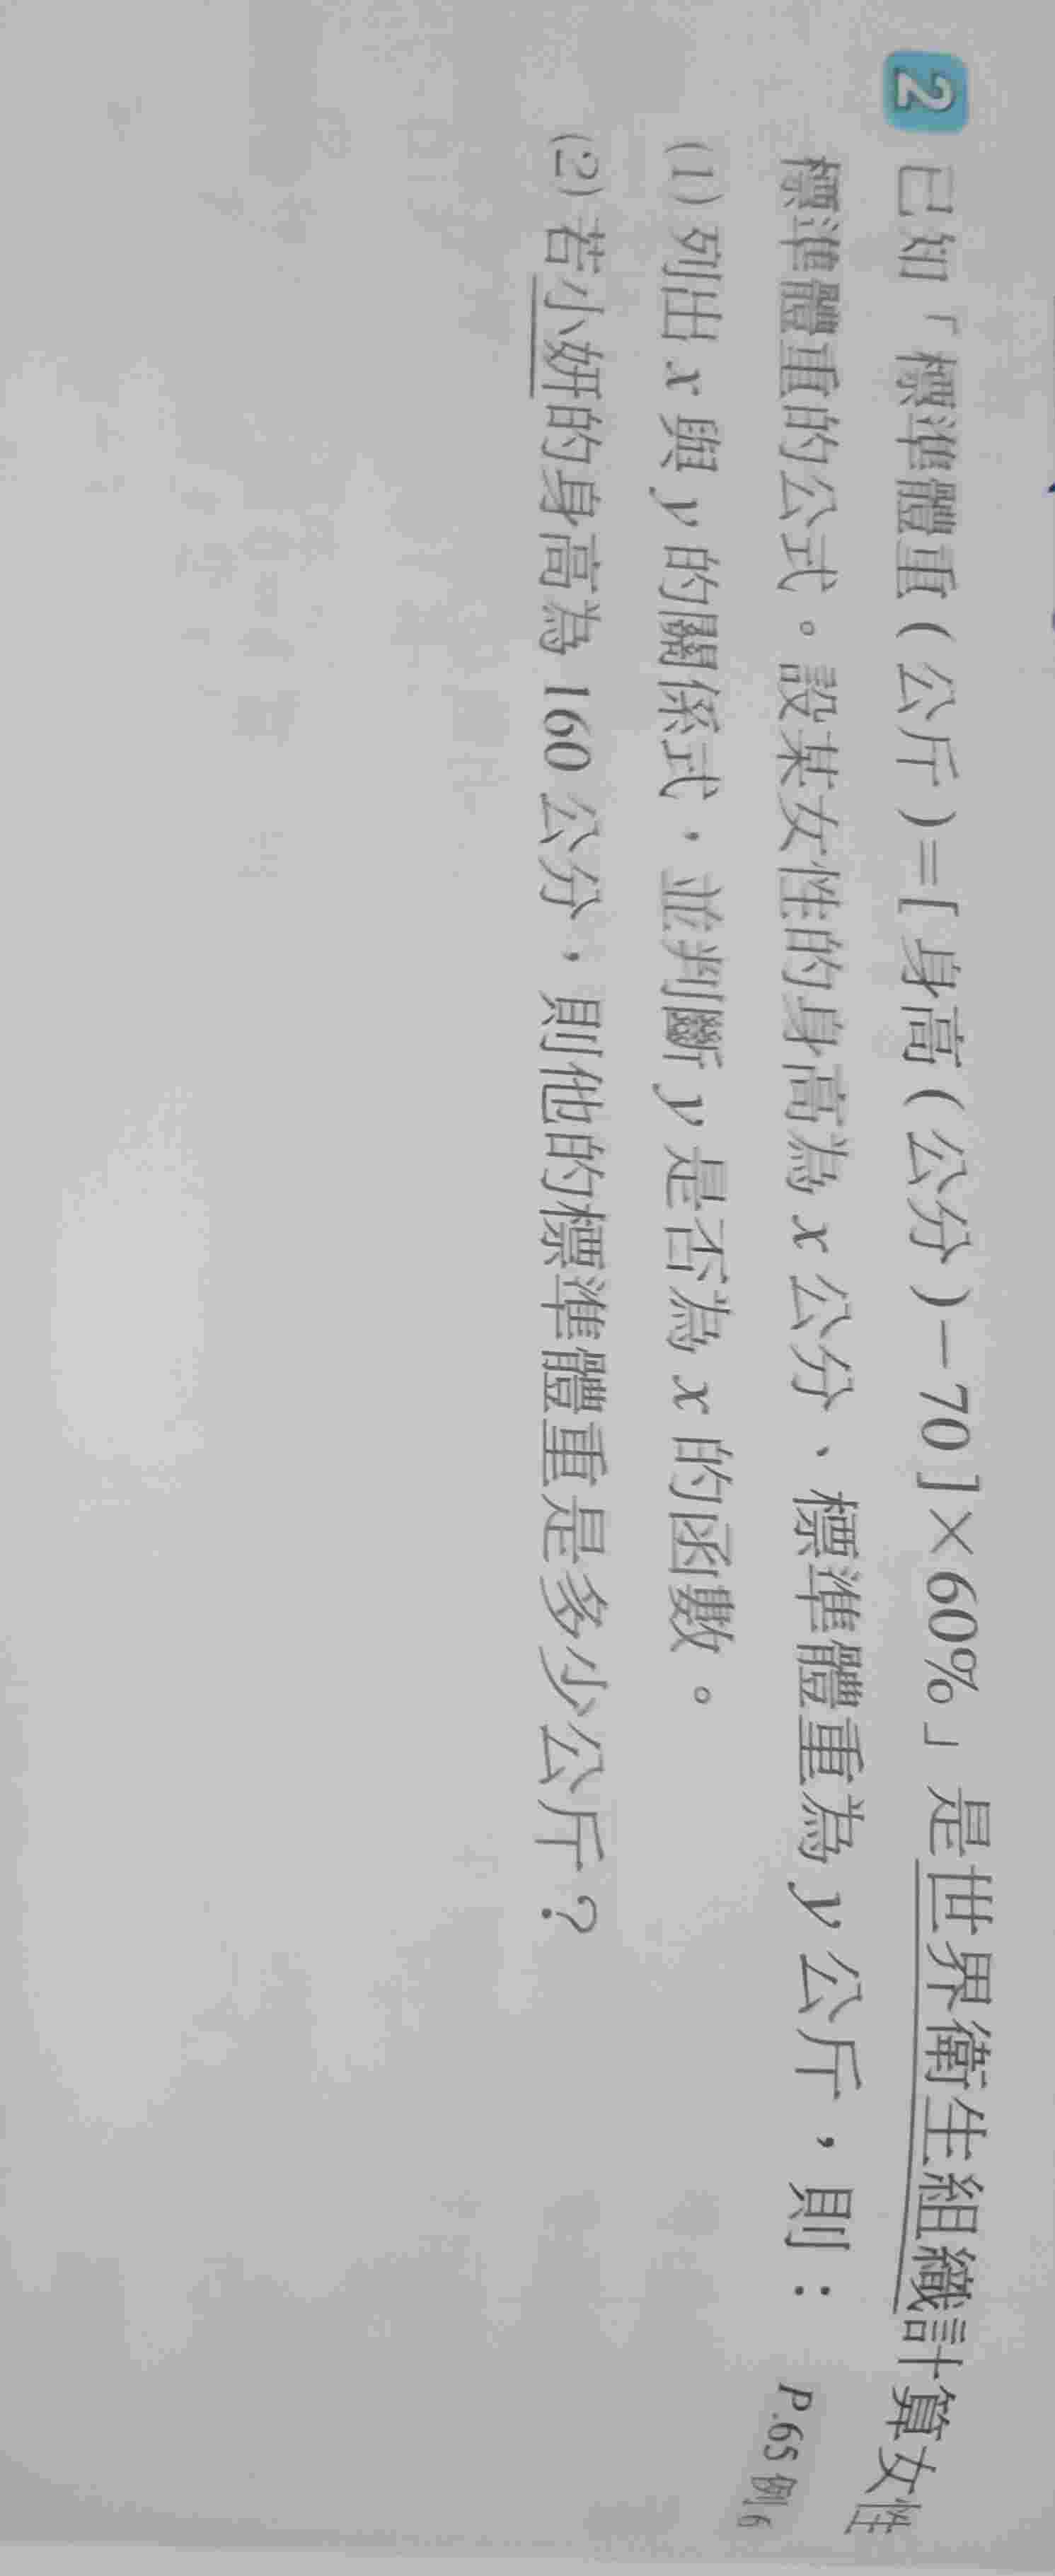 2 已知「標準體重(公斤)=[身高(公分)－70]×60%」是世界衛生組織計算女性
標準體重的公式。設某女性的身高為 x 公分、標準體重為 y 公斤，則：
P.65 例6
(1) 列出 x 與 y 的關係式，並判斷 y 是否為 x 的函數。
(2) 若小妍的身高為 160 公分，則他的標準體重是多少公斤？